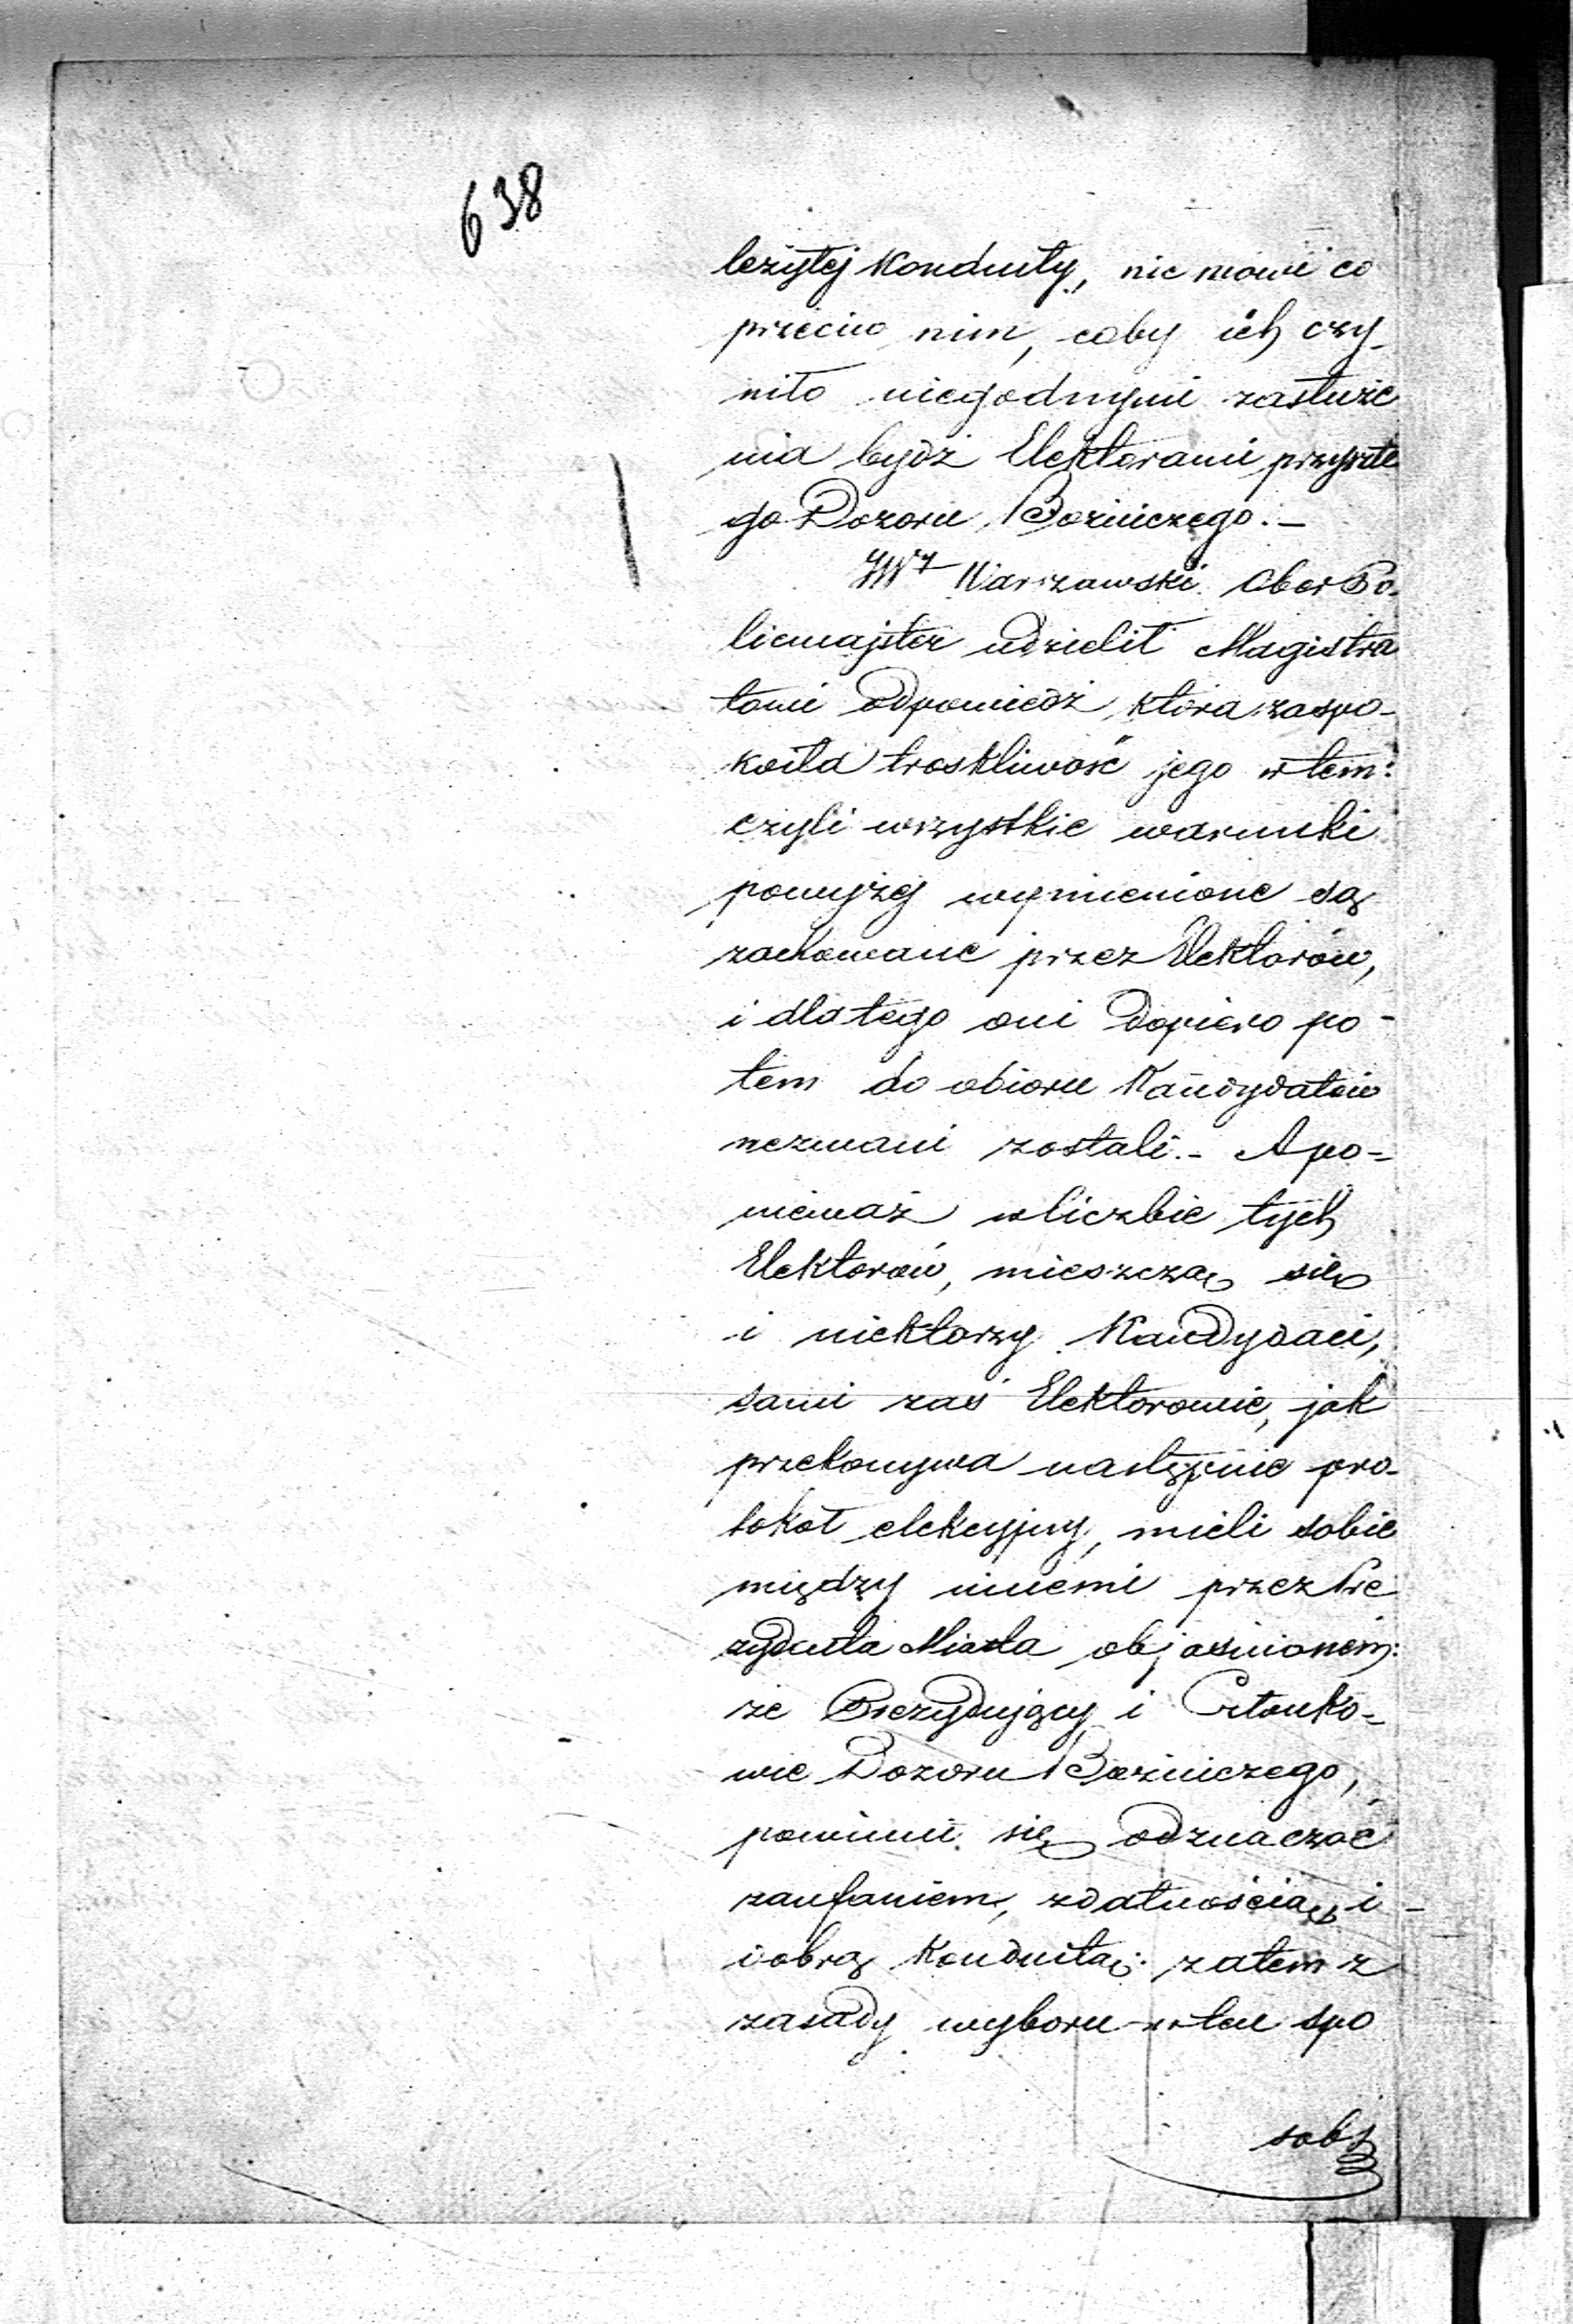 638
leżytej Konduity, nie mówi co
przeciw nim, coby ich czy-
niło niegodnymi zasłuże
nia bydź Elektorami przyszłe
go Dozoru Bożniczego.-
JW. Warszawski Ober Po-
licmajster udzielił Magistra
towi odpowiedź, która zaspo-
koiła troskliwość jego w tem:
czyli wszystkie warunki
powyżej wymienione są
zachowane przez Elektorów,
i dlatego oni dopiero po-
tem do obioru Kandydatów
wezwani zostali.- A po-
nieważ w liczbie tych
Elektorów, mieszczą się
i niektórzy Kandydaci,
sami zaś Elektorowie, jak
przekonywa następnie pro-
tokół elekcyjny, mieli sobie
między innemi przez Pre
zydenta Miasta objaśnionem:
że Prezydujący i Członko-
wie Dozoru Bożniczego,
powinni się odznaczać
zaufaniem, zdatnością i
dobrą Konduitą: zatem z
zasady wyboru w ten spo
sób